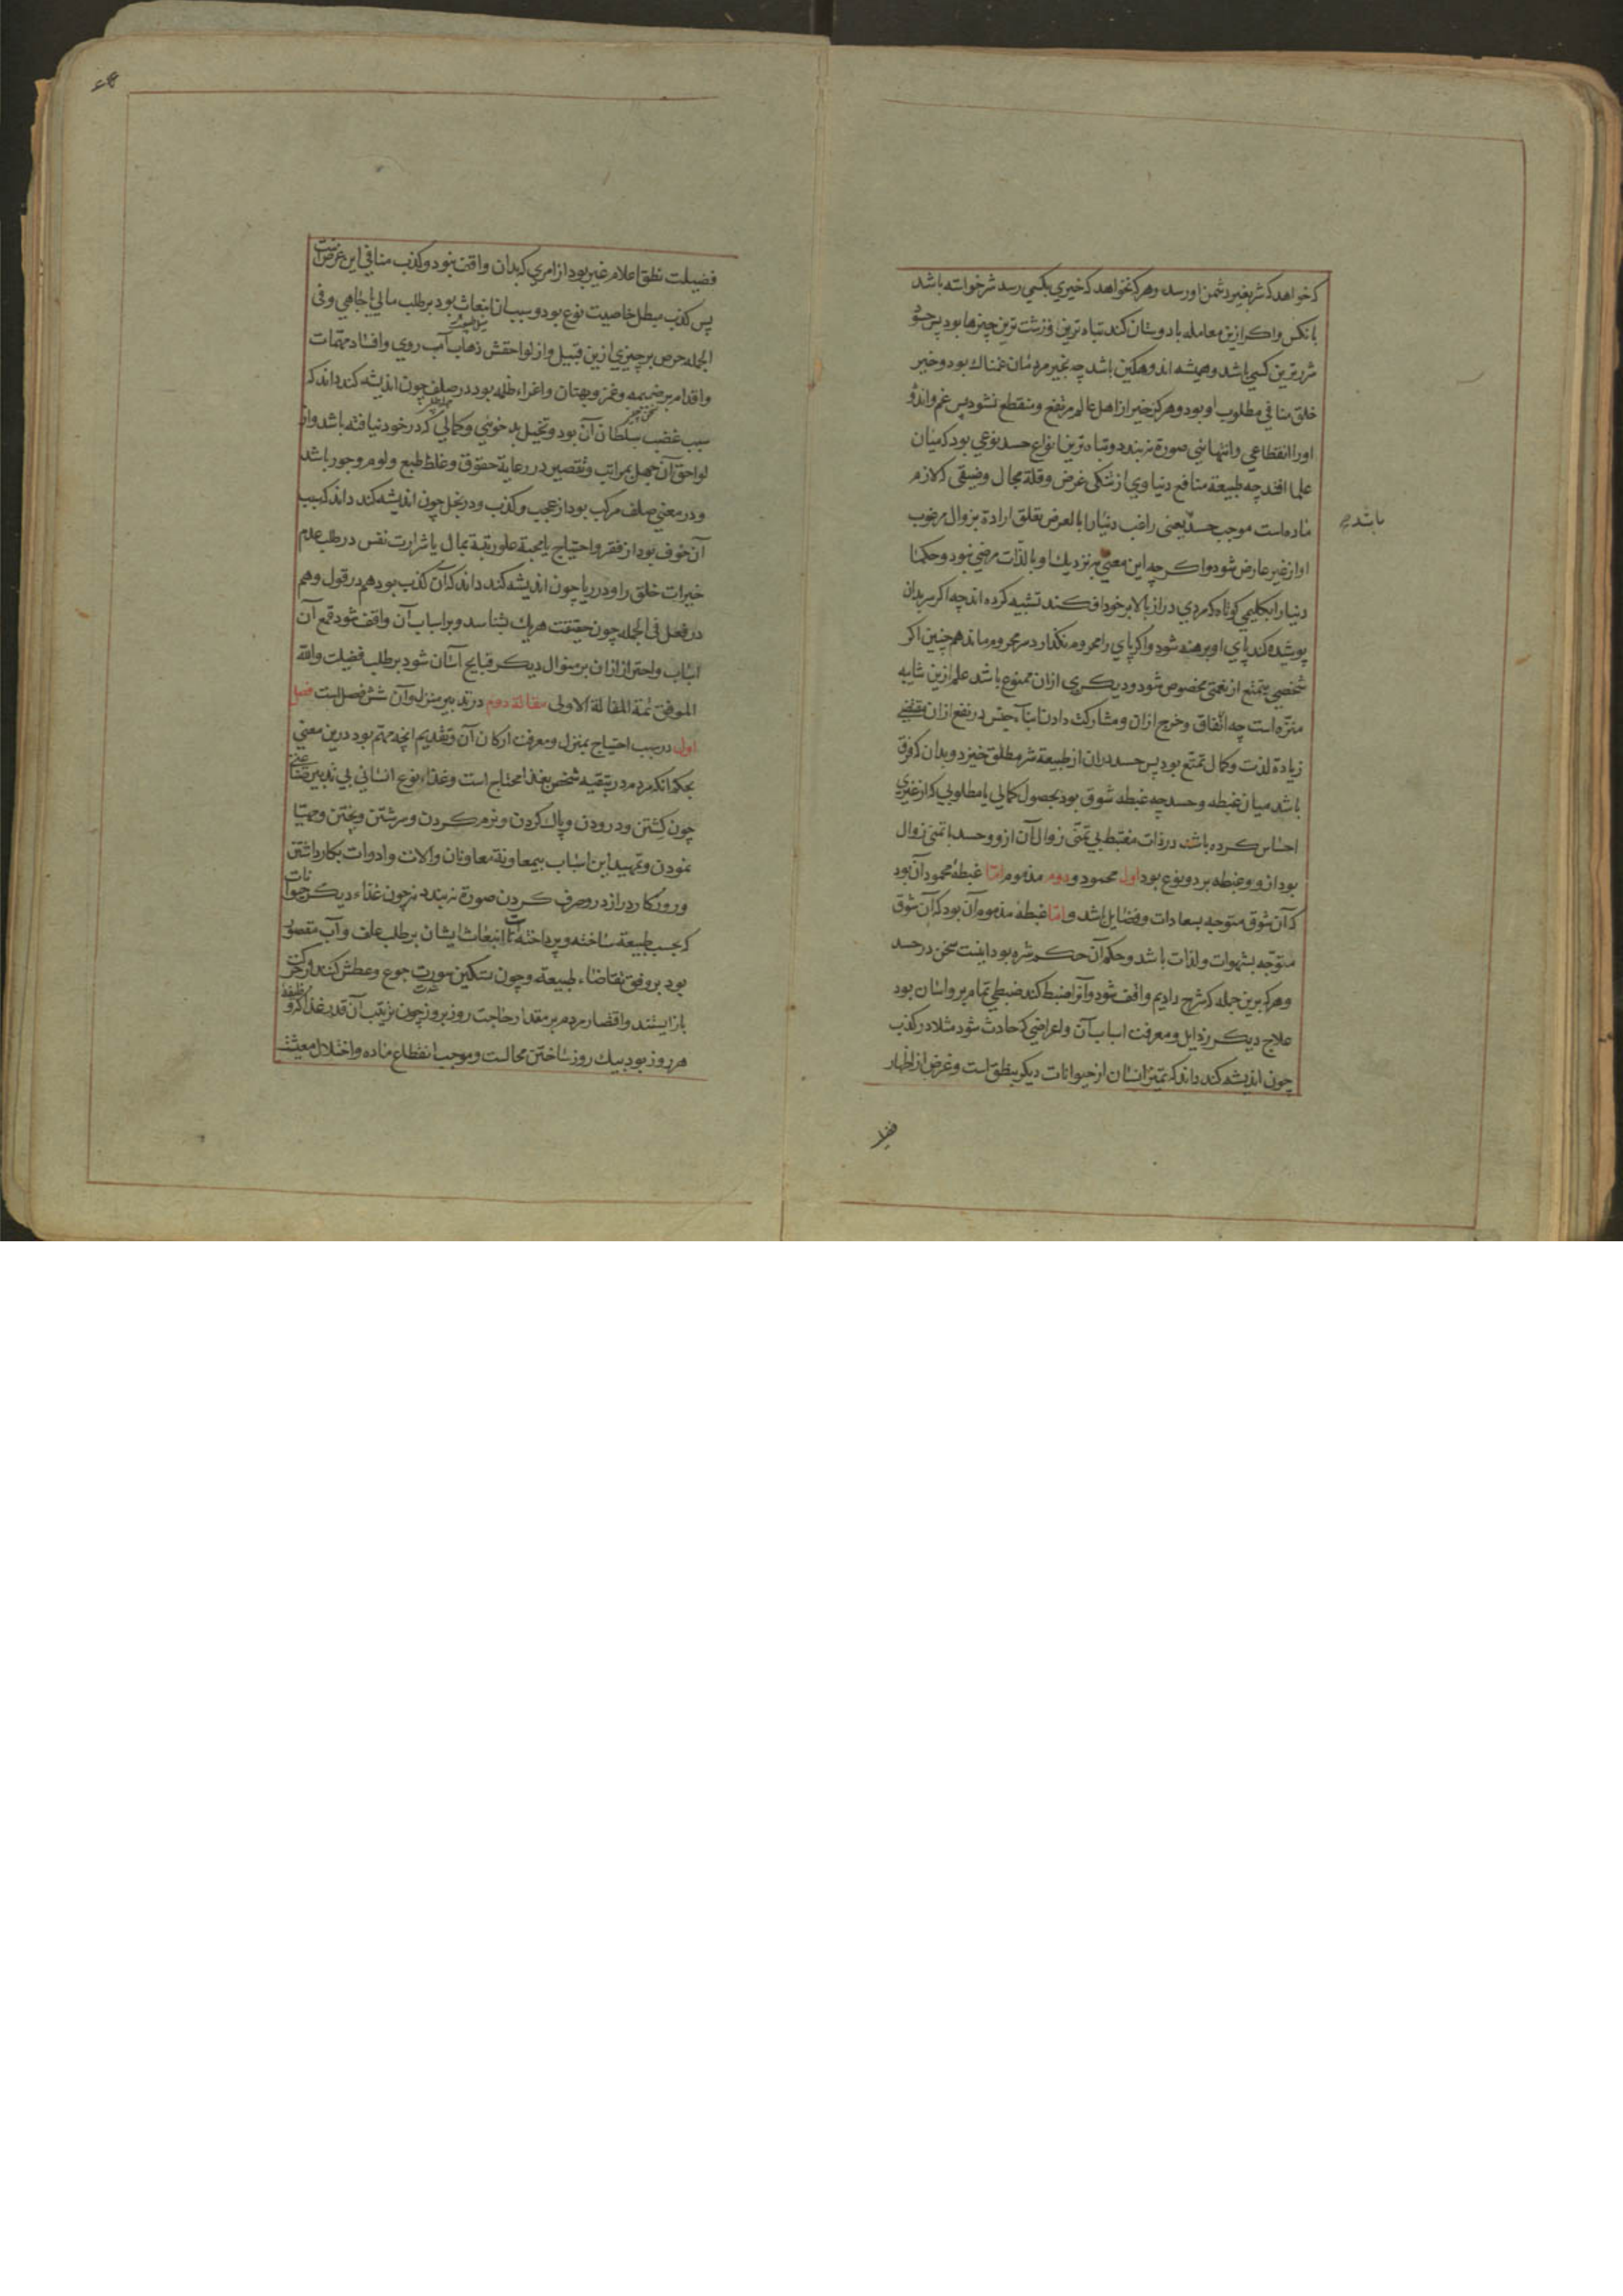 که خواهد که شر بغیر دشمن او رسد و هرکه نخواهد که خیری بکسی رسد شر خواسته باشد
بانکس واکر ازین معامله با دوستان کند تباه ترین و زشت ترین چیزها بود پس حسود
شرر ترین کسی باشد و همیشه اندوهکین باشد چه بخیر مردمان غمناک بود و خیر
خلق منافی مطلوب او بود و هرکز خیر از اهل عالم مرتفع و منقطع نشود پس غم واندوه
اورا انقطاعی وانتهائی صورة نبندد و تباه ترین انواع حسد نوعی بود که میان
علما افتد چه طبیعة منافع دنیاوی از تنکی عرض و قلة مجال و ضیقی که لازم
ماده است موجب حسد یعنی راغب دنیا را بالعرض تعلق ارادة بزوال مرغوب
باشد
او از غیر عارض شود و اکر چه این معنی بنزدیک او بالذات مرضی نبود و حکما
دنیا را بکلیمی کوتاه که مردی دراز بالا بر خود افکند تشبیه کرده اند چه اکر سر بدان
پوشیده کند پای او برهنه شود واکر پای را محروم نکذارد سر محروم ماند همچنین اکر
شخصی بتمتع از نعمتی مخصوص شود دیکری ازان ممنوع باشد و علم ازین شایبه
منزه است چه انفاق و خرج ازان و مشارکت دادن ابناء جنس در نفع ازان مقتضی
زیادة لذت و کمال تمتع بود پس حسد دران از طبیعة شر مطلق خیزد و بدان که فرق
باشد میان غبطه و حسد چه غبطه شوق بود بحصول کمالی یا مطلوبی که از غیری
احساس کرده باشد در ذات مغتبط بی تمنی زوال آن ازو و حسد با تمنی زوال
بود ازو و غبطه بر دو نوع بود اول محمود و دوم مذموم اما غبطهٔ محمود آن بود
که آن شوق متوجه بسعادات و فضایل باشد و اما غبطهٔ مذموم آن بود که آن شوق
متوجه بشهوات و لذات باشد و حکم آن حکم شره بود اینست سخن در حسد
و هرکه برین جمله که شرح دادیم واقف شود و آنرا ضبط کند ضبطی تمام بر و اسان بود
علاج دیکر رذایل و معرفت اسباب آن واعراضی که حادث شود مثلا در کذب
چون اندیشه کند داند که تمیز انسان از حیوانات دیکر بنطق است و غرض از اظهار
فضیلت نطق اعلام غیر بود از امری که بدان واقف نبود و کذب منافی این غرض است
پس کذب مبطل خاصیت نوع بود و سبب ان انبعاث بود بر طلب مالی یا جاهی و فی
الجمله حرص بر چیزی ازین قبیل و از لواحقش ذهاب آب روی وافساد مهمات
واقدام بر نمیمه و غمز و بهتان واغراء ظلمه بود در صلف چون اندیشه کند داند که
سبب غضب سلطان آن بود و تخیل بد خوئی و کمالی که در خود نیافته باشد و از
لواحق آن جهل بمراتب و تقصیر در رعایة حقوق و غلظ طبع و لوم و جور باشد
و در معنی صلف مرکب بود از عجب و کذب و در بخل چون اندیشه کند داند که سبب
آن خوف بود از فقر واحتیاج یا محبة علو رتبة بمال یا شرارت نفس در طلب عدم
خیرات خلق را و در ریا چون اندیشه کند داند که آن کذب بود هم در قول و هم
در فعل فی الجمله چون حقیقت هریک بشناسد و بر اسباب آن واقف شود قمع آن
اسباب واحتراز ازان بر منوال دیکر قبایح آسان شود بر طلب فضیلت والله
الموفق تمة المقالة الاولی مقالة دوم در تدبیر منزل و آن شش فصل است فصل
اول در سبب احتیاج بمنزل و معرفت ارکان آن و تقدیم انچه مهم بود درین معنی
بحکم انکه مردم در تبقیهٔ شخص بغذا محتاج است و غذاء نوع انسانی بی تدبیر صناعی
چون کشتن و درودن و پاک کردن و نرم کردن و سرشتن و پختن و مهیا
نمودن و تمهید این اسباب بمعاونة معاونان و الات و ادوات بکار داشتن
و روزکار دراز در و صرف کردن صورة نبندد نه چون غذاء دیکر حیوانات
که بحسب طبیعة ساخته و پرداخته است تا انبعاث ایشان بر طلب علف و آب مقصور
بود بر وفق تقاضاء طبیعة و چون تسکین سورت جوع و عطش کنند از حرکت
باز ایستند واقتصار مردم بر مقدار حاجت روز بروز چون ترتیب آن قدر غذا که وظیفهٔ
هر روز بود بیک روز ساختن محالست و موجب انقطاع ماده واختلال معیشت